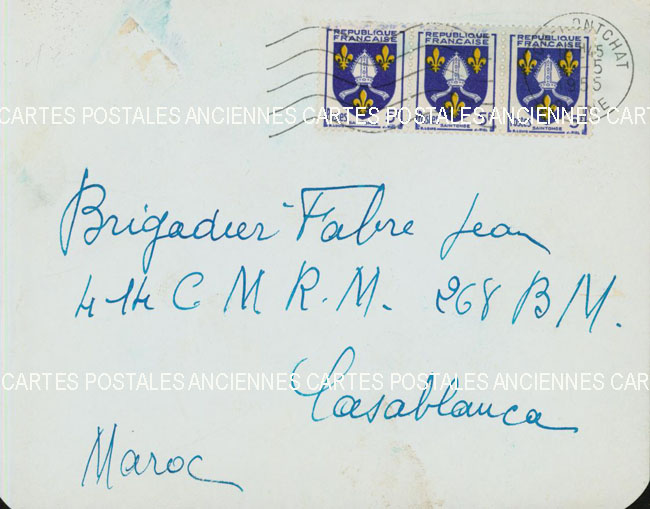 REPUBLIQUE FRANÇAISE REPUBLIQUE FRANÇAISE REPUBLIQUE FRANÇAISE
SAINTONGE SAINTONGE
CARTES POSTALES ANCIENNES CARTES POSTALES ANCIENNES CAR
Brigadier Fabre Jean
414 C M R. M. 268 B M.
CARTES POSTALES ANCIENNES CARTES POSTALES ANCIENNES CAR
Casablanca
Maroc